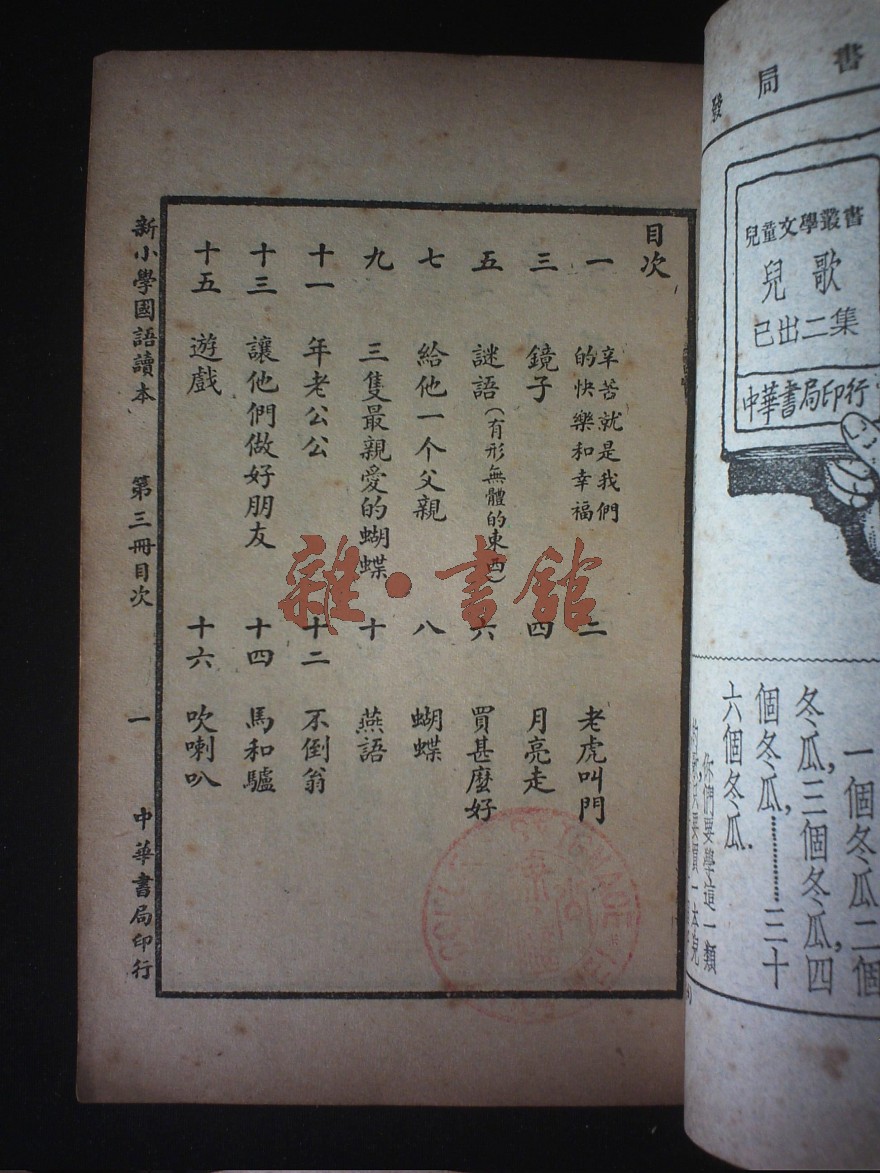 書局發
兒童文學叢書
兒歌
已出二集
中華書局印行
一個冬瓜二個
冬瓜,三個冬瓜,四
個冬瓜,…………三十
六個冬瓜.
你們要學這一類
目次
一 辛苦就是我們
的快樂和幸福
二 老虎叫門
三 鏡子
四 月亮走
五 謎語(有形無體的東西)
六 買甚麼好
七 給他一个父親
八 蝴蝶
九 三隻最親愛的蝴蝶
十 燕語
十一 年老公公
十二 不倒翁
十三 讓他們做好朋友
十四 馬和驢
十五 遊戲
十六 吹喇叭
新小學國語讀本 第三冊目次 一 中華書局印行
雜·書館